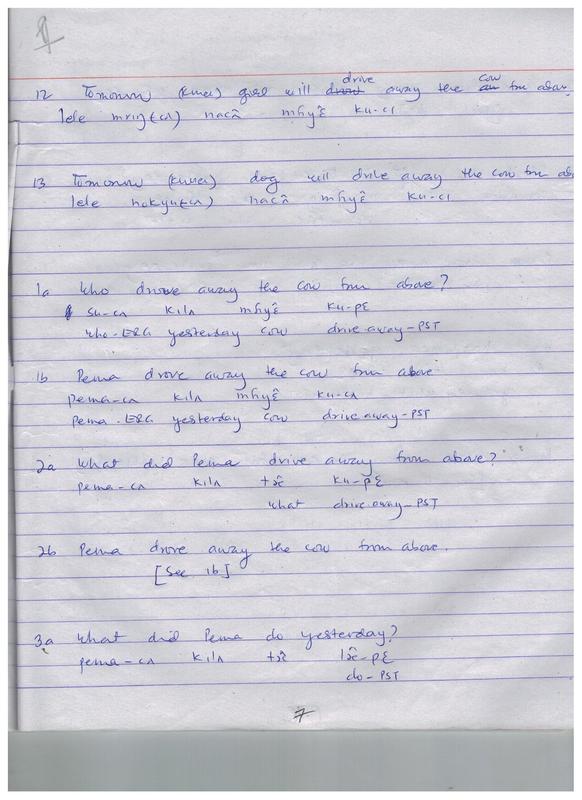 12 Tomorrow (kuner) girl will drive away the cow frm above
lele mrıŋ(cʌ) nacʌ̂ mɦyɛ̂ ku-cı
13 Tomorrow (kuner) dog will drive away the cow frm ab
lele nʌkyu(cʌ) nacʌ̂ mɦyɛ̂ ku-cı
1a Who drove away the cow from above?
su-cʌ kilʌ mɦyɛ̂ ku-pɛ
who-ERG yesterday cow drive away-PST
1b Pema drove away the cow from above
pema-cʌ kilʌ mɦyɛ̂ ku-cʌ
pema-ERG yesterday cow drive away-PST
2a What did Pema drive away from above?
pema-cʌ kilʌ ku-pɛ
what drive away-PST
2b Pema drove away the cow from above.
[See 1b]
3a What did Pema do yesterday?
pema-cʌ kilʌ
do-PST
7